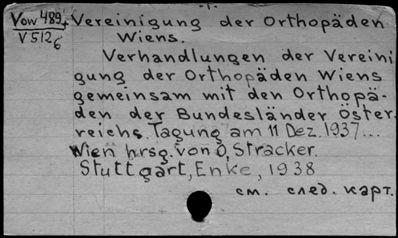 Vow 489
V 5126
Vereinigung der Orthopäden
Wiens.
Verhandlungen der Vereini
gung der Orthopäden Wiens
gemeinsam mit den Orthopä-
den der Bundesländer Öster-
reichs. Tagung am 11 Dez. 1937...
Wien hrsg. von O. Stracker.
Stuttgart, Enke, 1938
см. след. карт.